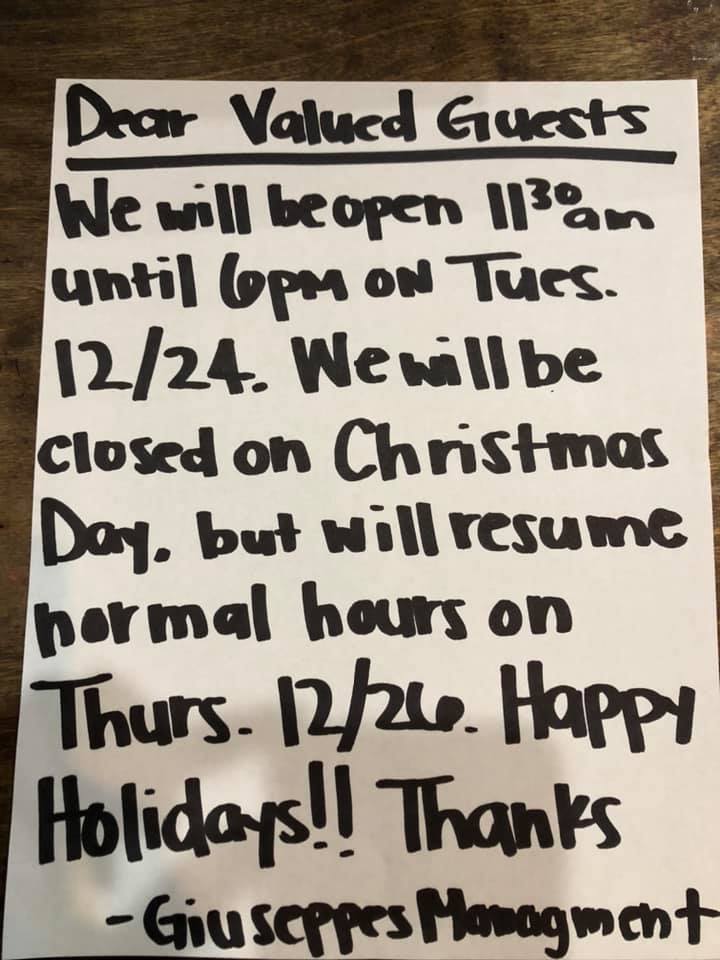 Dear Valued Guests
We will be open 11³⁰am
until 6PM ON Tues.
12/24. We will be
closed on Christmas
Day, but will resume
normal hours on
Thurs. 12/26. Happy
Holidays!! Thanks
-Giuseppes Managment